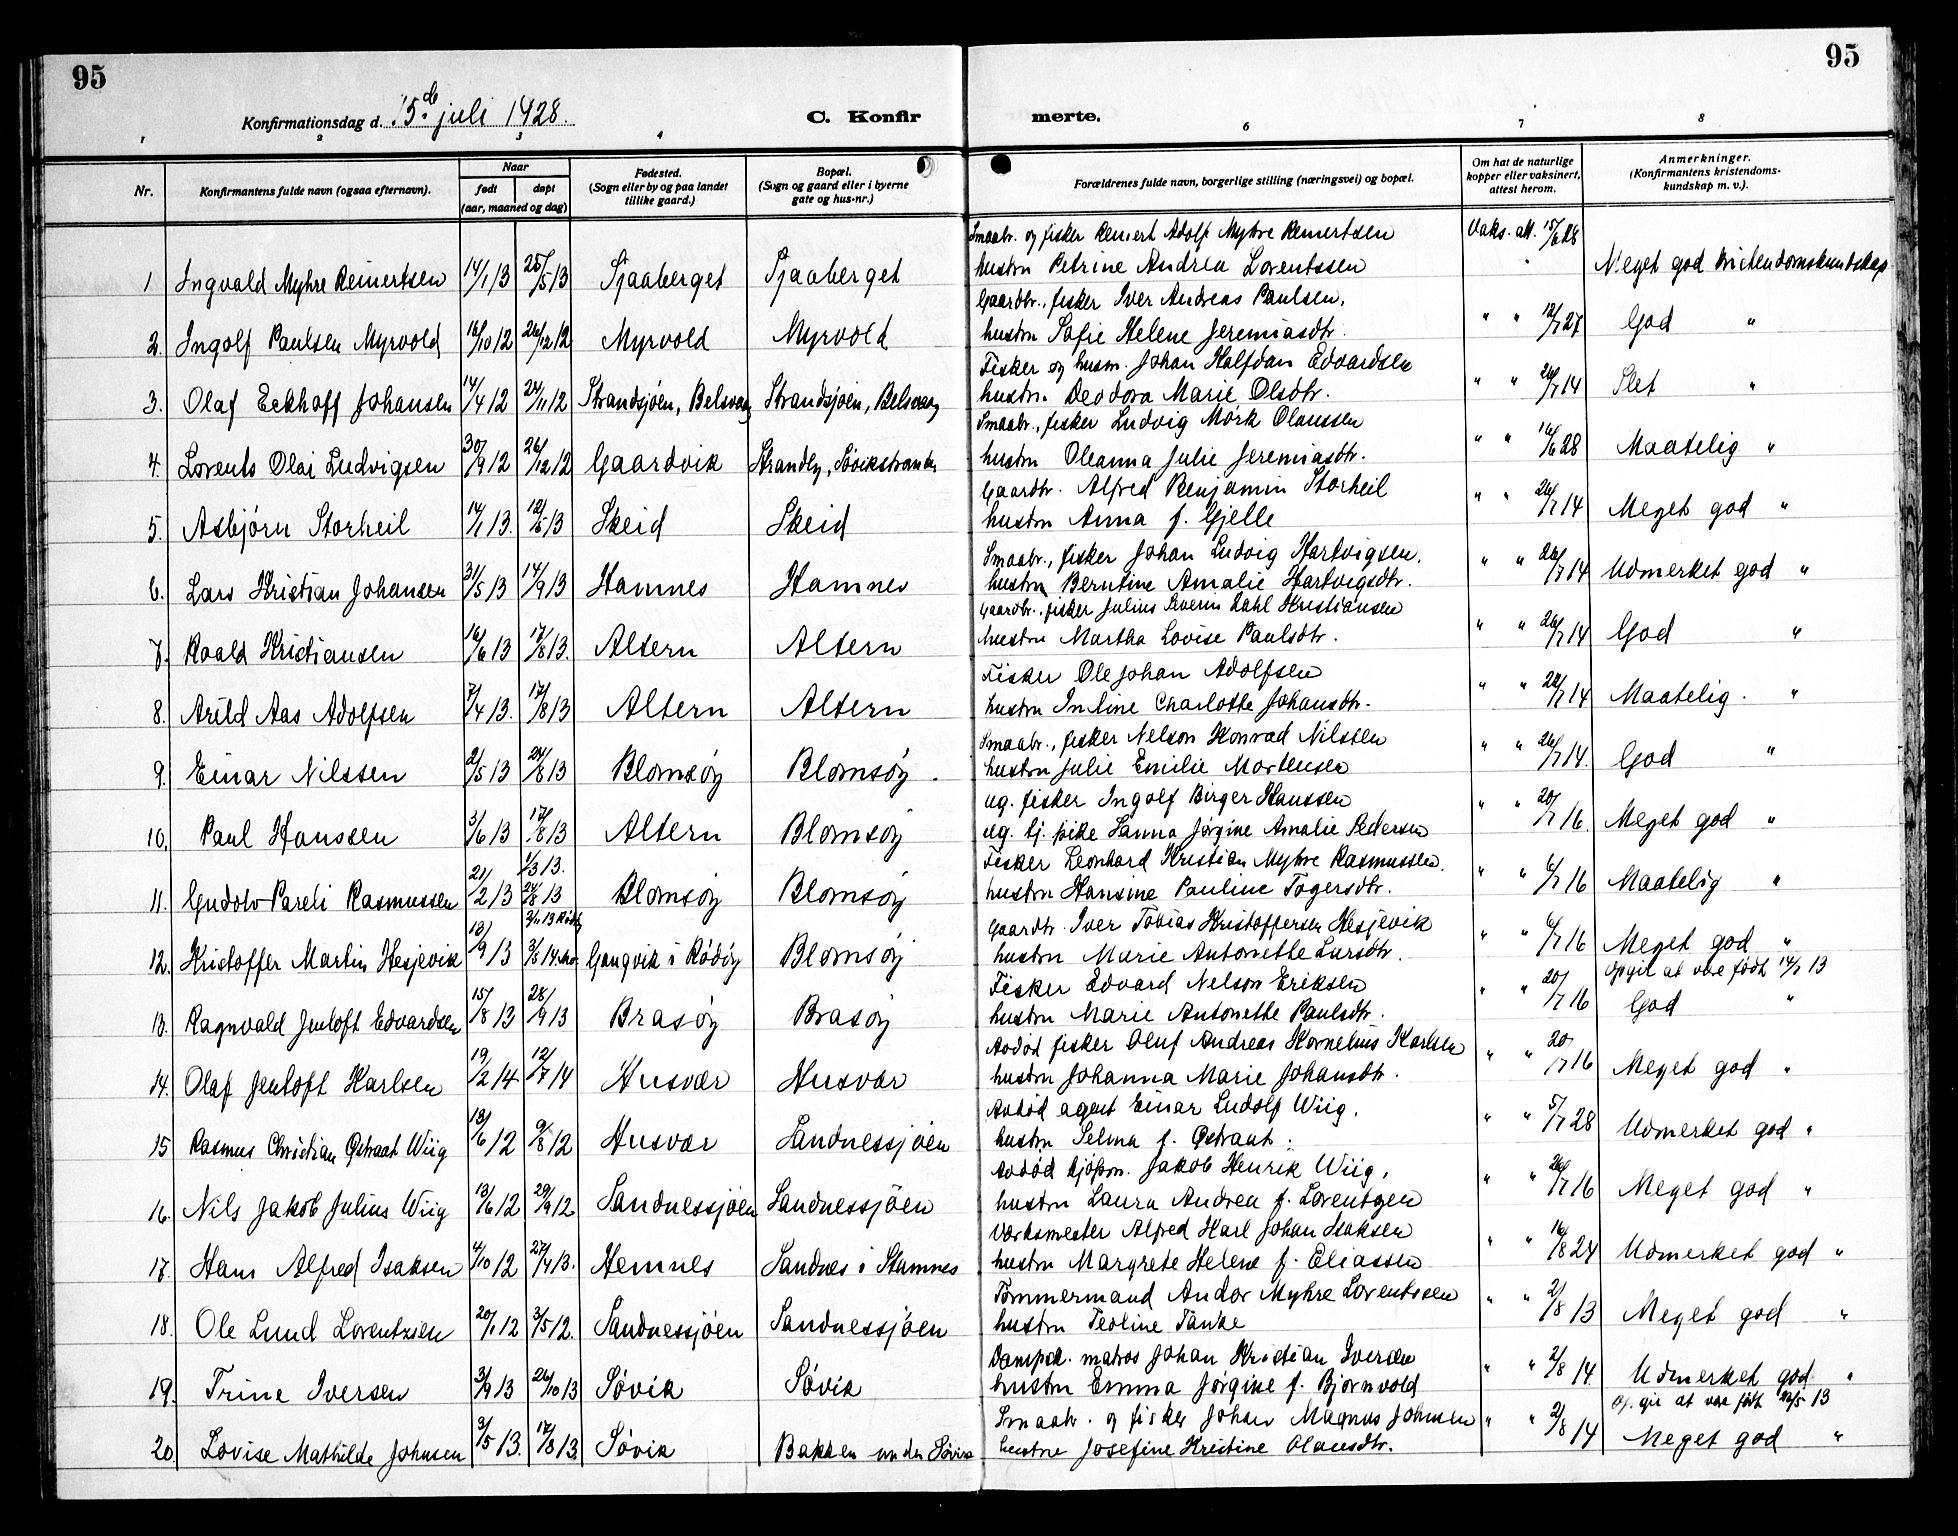 95
95
Konfirmationsdag d. 15.de juli 1928.
C. Konfir
merte.
1 2 3 4 6 7 8
Nr.
Konfirmantens fulde navn (ogsaa efternavn).
Naar
født
døpt
(aar, maaned og dag)
Fødested.
(Sogn eller by og paa landet
tillike gaard.)
Bopæl.
(Sogn og gaard eller i byerne
gate og hus-nr.)
Forældrenes fulde navn, borgerlige stilling (næringsvei) og bopæl.
Om hat de naturlige
kopper eller vaksinert,
attest herom.
Anmerkninger.
(Konfirmantens kristendoms-
kundskap m. v.).
Smaabr. og fisker Reinert Adolf Myhre Reinertsen Vaks. att. 15/6 28
1 Ingvald Myhre Reinertsen 14/1 13 25/5 13 Sjaaberget Sjaaberget hustru Petrine Andrea Lorentssen Meget god kristendomskundskap
Gaardbr., fisker Iver Andreas Paulsen,
2. Ingolf Paulsen Myrvold 16/10 12 26/12 12 Myrvold Myrvold hustru Sofie Helene Jeremiasdtr. " " 12/7 27 God "
Fisker og husm. Johan Halfdan Edvardsen
3. Olaf Eckhoff Johansen 14/4 12 24/11 12 Strandsjøen, Belsvaag Strandsjøen, Belsvaag hustru Deodora Marie Olsdtr. " " 26/7 14 Slet "
Smaabr., fisker Ludvig Mørk Olaussen
4. Lorents Olai Ludvigsen 30/9 12 26/12 12 Gaardvik Strandby, Søvikstranden hustru Oleanna Julie Jeremiasdtr. " " 16/6 28 Maatelig "
Gaardbr. Alfred Benjamin Storheil
5. Asbjørn Storheil 14/1 13. 12/5 13 Skeid Skeid hustru Anna f. Gjelle " " 26/7 14 Meget god "
Smaabr., fisker Johan Ludvig Hartvigsen.
6. Lars Kristian Johansen 31/5 13 14/9 13 Hamnes Hamnes hustru Berntine Amalie Hartvigsdtr. " " 26/7 14 Udmerket god "
Gaardbr., fisker Julius Severin Dahl Kristiansen
7. Roald Kristiansen 16/6 13 17/8 13. Altern Altern hustru Martha Lovise Paulsdtr. " " 26/7 14 God "
Fisker Ole Johan Adolfsen
8. Arild Aas Adolfsen 7/4 13. 17/8 13 Altern Altern hustru Intine Charlotte Johansdtr. " " 22/7 14 Maatelig. "
Smaabr., fisker Nelson Konrad Nilssen
9. Einar Nilssen 2/5 13 24/8 13 Blomsøy Blomsøy. hustru Julie Emilie Mortensen " " 26/7 14. God "
ug. fisker Ingolf Birger Hanssen
10. Paul Hanssen 3/6 13 17/8 13 Altern Blomsøy ug. tj. pike Sanna Jørgine Amalie Pedersen " " 20/7 16. Meget god "
1/3 13. Fisker Leonhard Kristian Myhre Rasmussen.
11. Gudolv Pareli Rasmussen 21/2 13 24/8 13 Blomsøy Blomsøy hustru Hansine Pauline Togersdtr. " " 6/7 16 Maatelig "
2/11 13 Gaardbr. Iver Tobias Kristoffersen Hesjevik
12. Kristoffer Martin Hesjevik 13/9 13 3/5 14 Gangvik i Rødøy Blomsøy hustru Marie Antonette Larsdtr. " " 6/7 16 Meget god "
Fisker Edvard Nelson Eriksen Opgir at være født 14/7 13
13. Ragnvald Jentoft Edvardsen 15/8 13 28/9 13 Brasøy Brasøy hustru Marie Antonette Paulsdtr. " " 20/7 16 God "
Avdød fisker Oluf Andreas Kornelius Karlsen
14. Olaf Jentoft Karlsen 19/2 14 12/7 14 Husvær Husvær hustru Johanna Marie Johansdtr. " " 20/7 16 Meget god "
Avdød agent Einar Ludolf Wiig,
15 Rasmus Christian Østraat Wiig 13/6 12 9/8 12 Husvær Sandnessjøen hustru Selma f. Østraat. " " 5/7 28 Udmerket god "
Avdød kjøbm. Jakob Henrik Wiig,
16. Nils Jakob Julius Wiig 13/6 12 29/9 12 Sandnessjøen Sandnessjøen hustru Laura Andrea f. Lorentzen " " 26/7 16 Meget god "
Verksmester Alfred Karl Johan Isaksen
17. Hans Alfred Isaksen 4/10 12 27/4 13. Hemnes Sandnes i Stamnes hustru Margrete Helene f. Eliassen " " 16/8 24 Udmerket god "
Tømmermand Andor Myhre Lorentssen
18. Ole Lund Lorentzsen 20/1 12 3/5 12. Sandnessjøen Sandnessjøen hustru Teoline Tanke " " 2/8 13 Meget god "
Dampsk. matros Johan Kristian Iversen
19. Trine Iversen 3/9 13 26/10 13 Søvik Søvik hustru Emma Jørgine f. Bjørnvold " " 2/8 14. Udmerket god "
Smaabr. og fisker Johan Magnus Johnsen Opgir at være født 22/5 13
20. Lovise Mathilde Johnsen 3/5 13. 17/8 13. Søvik Bakken under Søvik hustru Josefine Kristine Olausdtr. " " 2/8 14 Meget god "